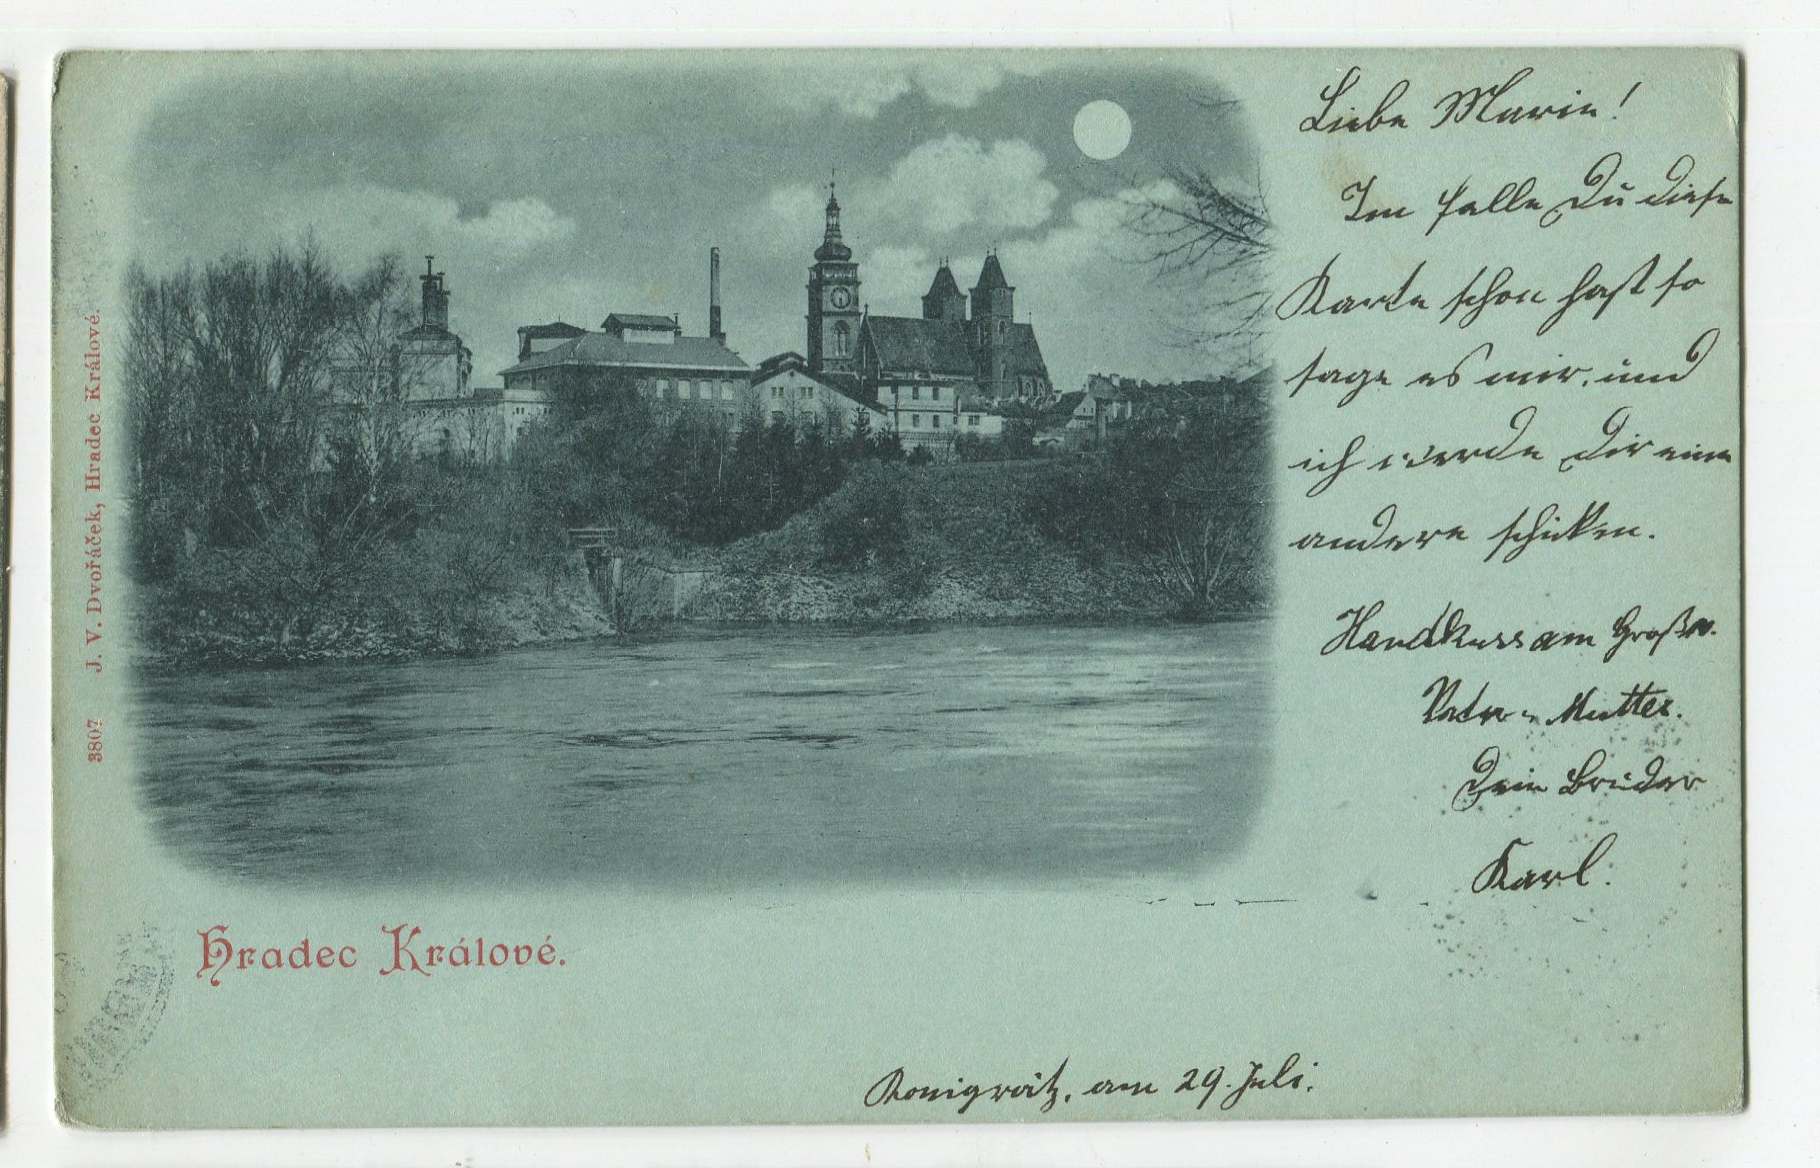 Liebe Marie!
Im falle Du diese
Karte schon hast so
sage es mir, und
ich werde Dir eine
andere schicken.
Handkuss am Großv.
Vater u. Mutter.
Dein Bruder
Karl.
J. V. Dvořáček, Hradec Králové.
3807
Hradec Králové.
Königrätz, am 29. Juli.